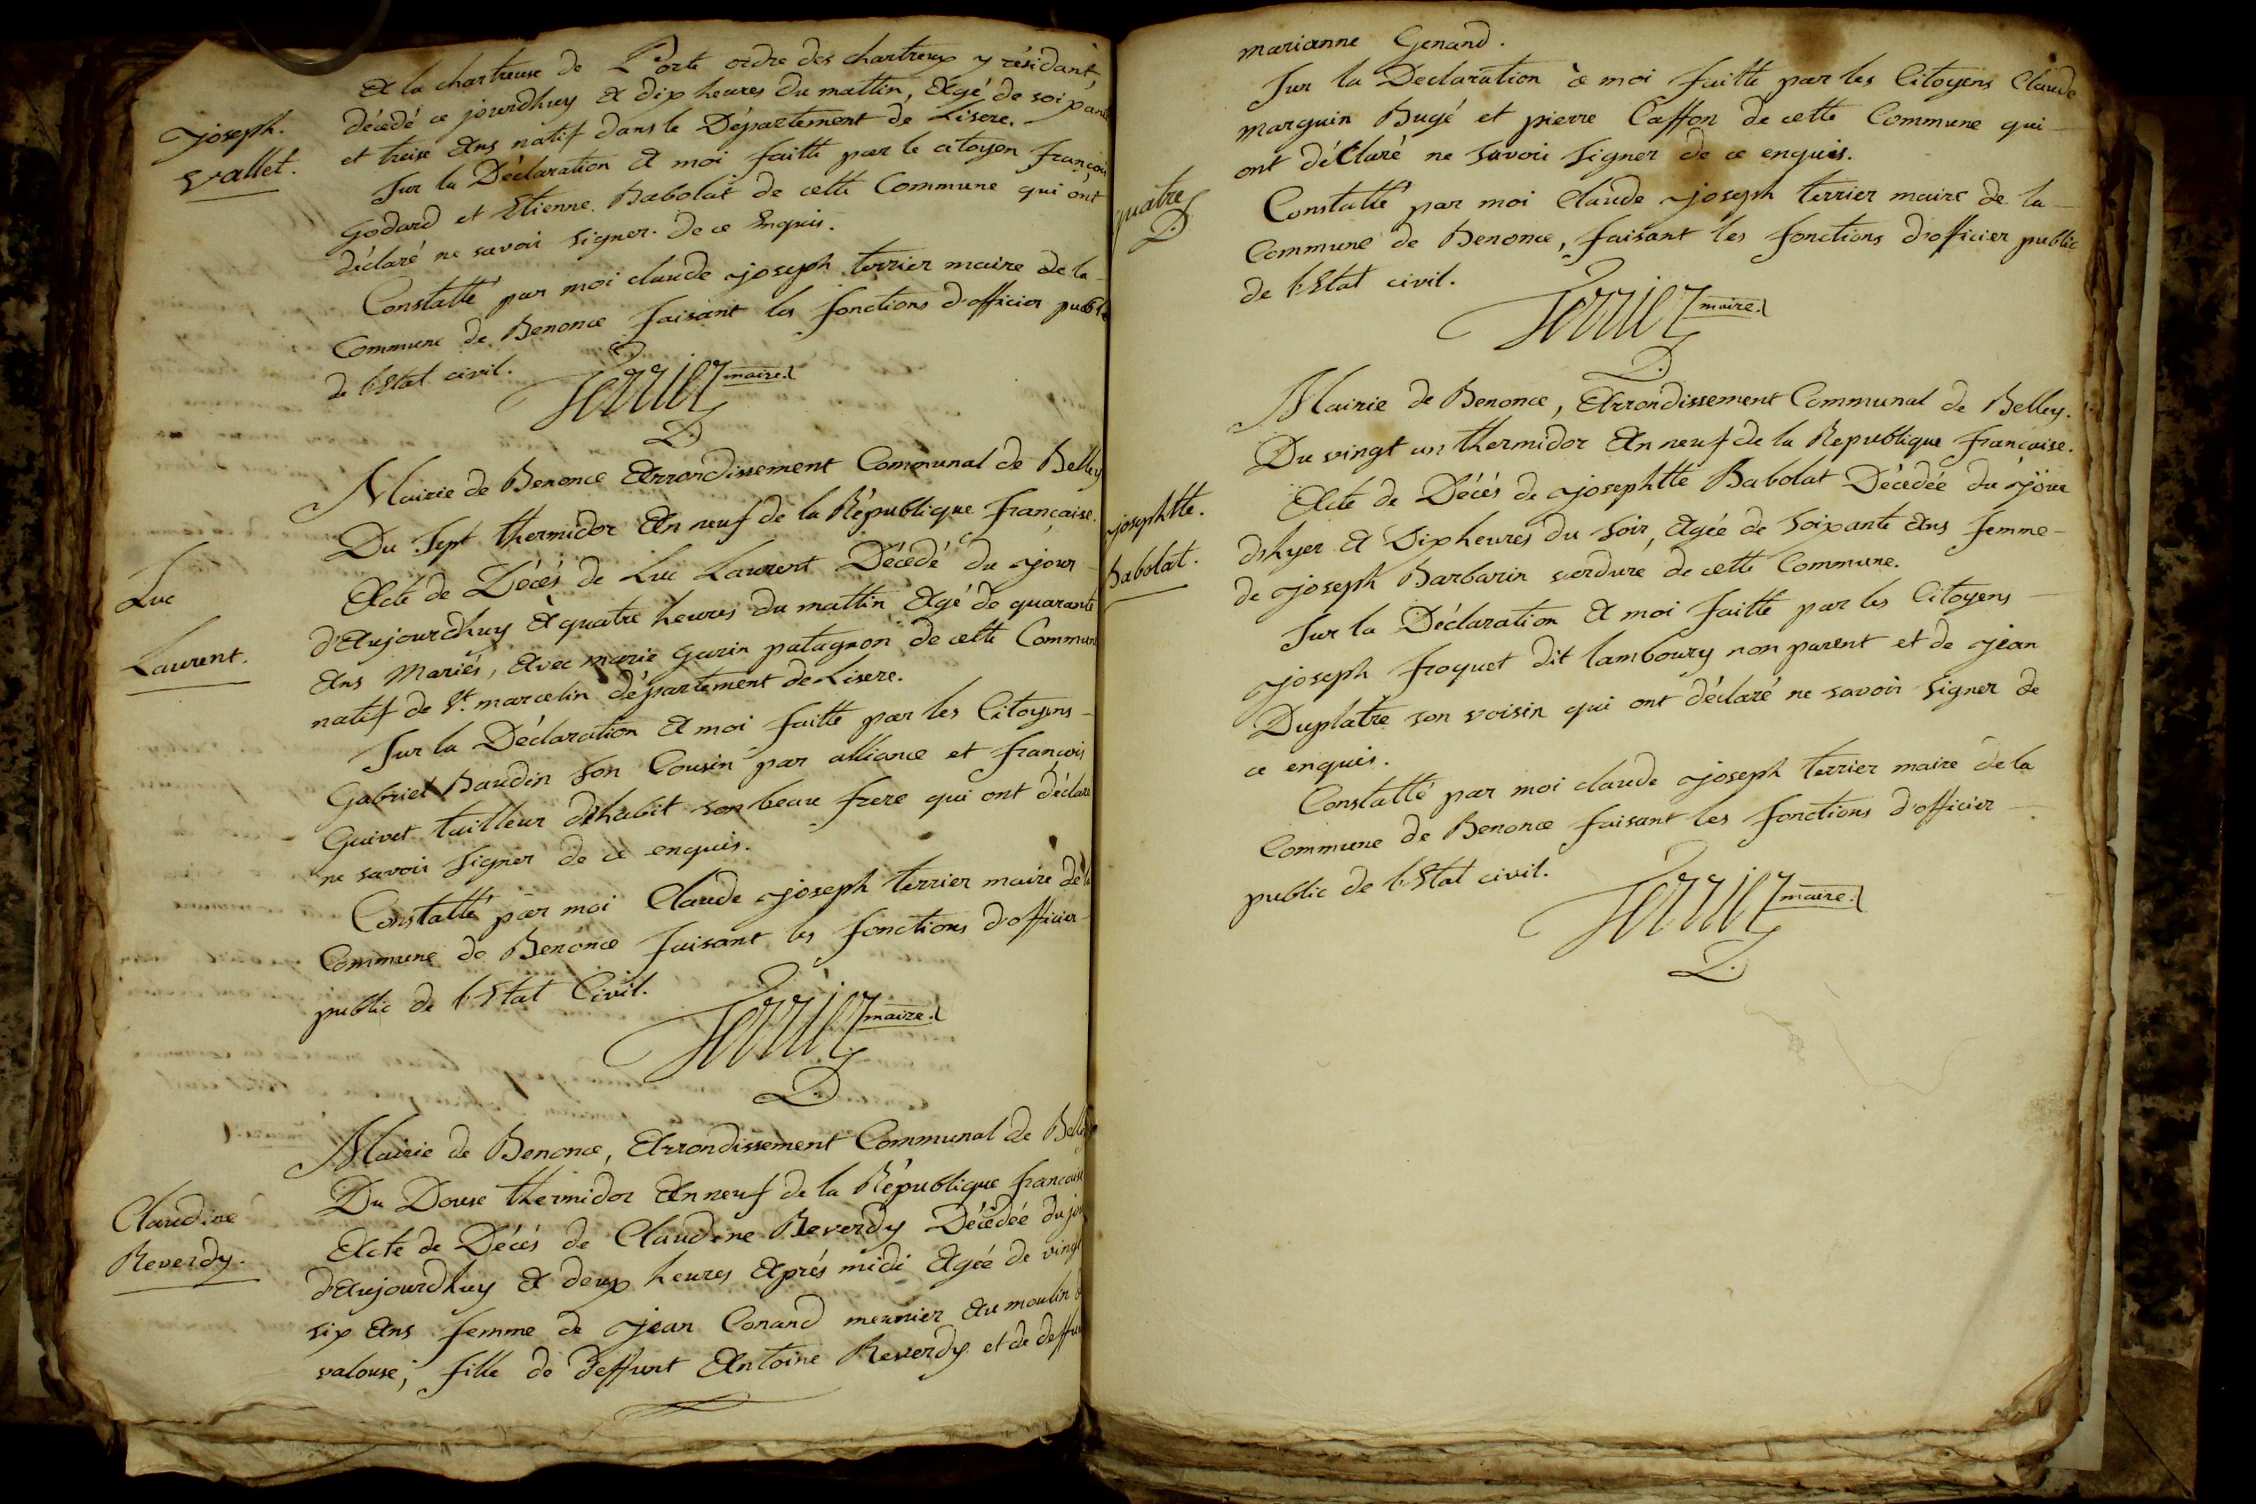 Joseph.
Vallet.
A la chartreuse de Porte ordre des chartreux y résidant,
décédé ce jourdhuy A dix heures du mattin, Agé de soixante
et treise Ans natif dans le Département de Lisere.
Sur la Déclaration A moi faitte par le citoyen françois
Godard et Etienne Babolat de cette Commune qui ont
déclaré ne savoir signer. de ce Enquis.
Constatté par moi claude joseph terrier maire de la
Commune de Benonce faisant les fonctions d'officier public
de l'Etat civil.
Terrier maire.
D.
Luc
Laurent.
Mairie de Benonce Arrondissement Communal de Belley
Du Sept thermidor An neuf de la République francaise.
Acte de Décés de Luc Laurent Décédé du jour
d'Aujourdhuy A quatre heures du mattin Agé de quarante
Ans Mariés, Avec marie Garin patagnon de cette Commune
natif de St. marcelin département de Lisere.
Sur la Déclaration A moi faitte par les Citoyens
Gabriel Baudin son Cousin par alliance et francois
Guivet tailleur d'habit son beau frere qui ont déclaré
ne savoir signer de ce enquis.
Constatté par moi Claude joseph terrier maire de la
Commune de Benonce faisant les fonctions d'officier
public de l'Etat Civil.
Terrier maire.
D.
Claudine
Reverdy.
Mairie de Benonce, Arrondissement Communal de Belley
Du Douse thermidor An neuf de la République francaise
Acte de Décés de Claudine Reverdy Décédée du jour
d'Aujourdhuy A deux heures Aprés midi Agée de vingt
six Ans femme de jean Conand meunier Au moulin de
valouse; fille de deffunt Antoine Reverdy et de deffunte
marianne Genand.
Sur la Declaration à moi faitte par les Citoyens Claude
Marguin Bugé et pierre Caffon de cette Commune qui
ont déClaré ne savoir signer de ce enquis.
quatre
D.
Constatté par moi Claude joseph terrier maire de la
Commune de Benonce, faisant les fonctions d'officier public
de l'Etat civil.
Terrier maire.
D.
Mairie de Benonce, Arrondissement Communal de Belley.
Du vingt un thermidor An neuf de la Republique francaise.
josephtte.
Babolat.
Acte de Décés de josephtte Babolat Décédée du jour
d'hyer A Dix heures du soir, Agée de soixante Ans femme
de joseph Barbarin verdure de cette Commune.
Sur la Déclaration A moi faitte par les Citoyens
joseph froquet dit lamboury non parent et de jean
Duplatre son voisin qui ont déclaré ne savoir signer de
ce enquis.
Constatté par moi claude joseph terrier maire de la
Commune de Benonce faisant les fonctions d'officier
public de l'Etat civil.
Terrier maire.
D.